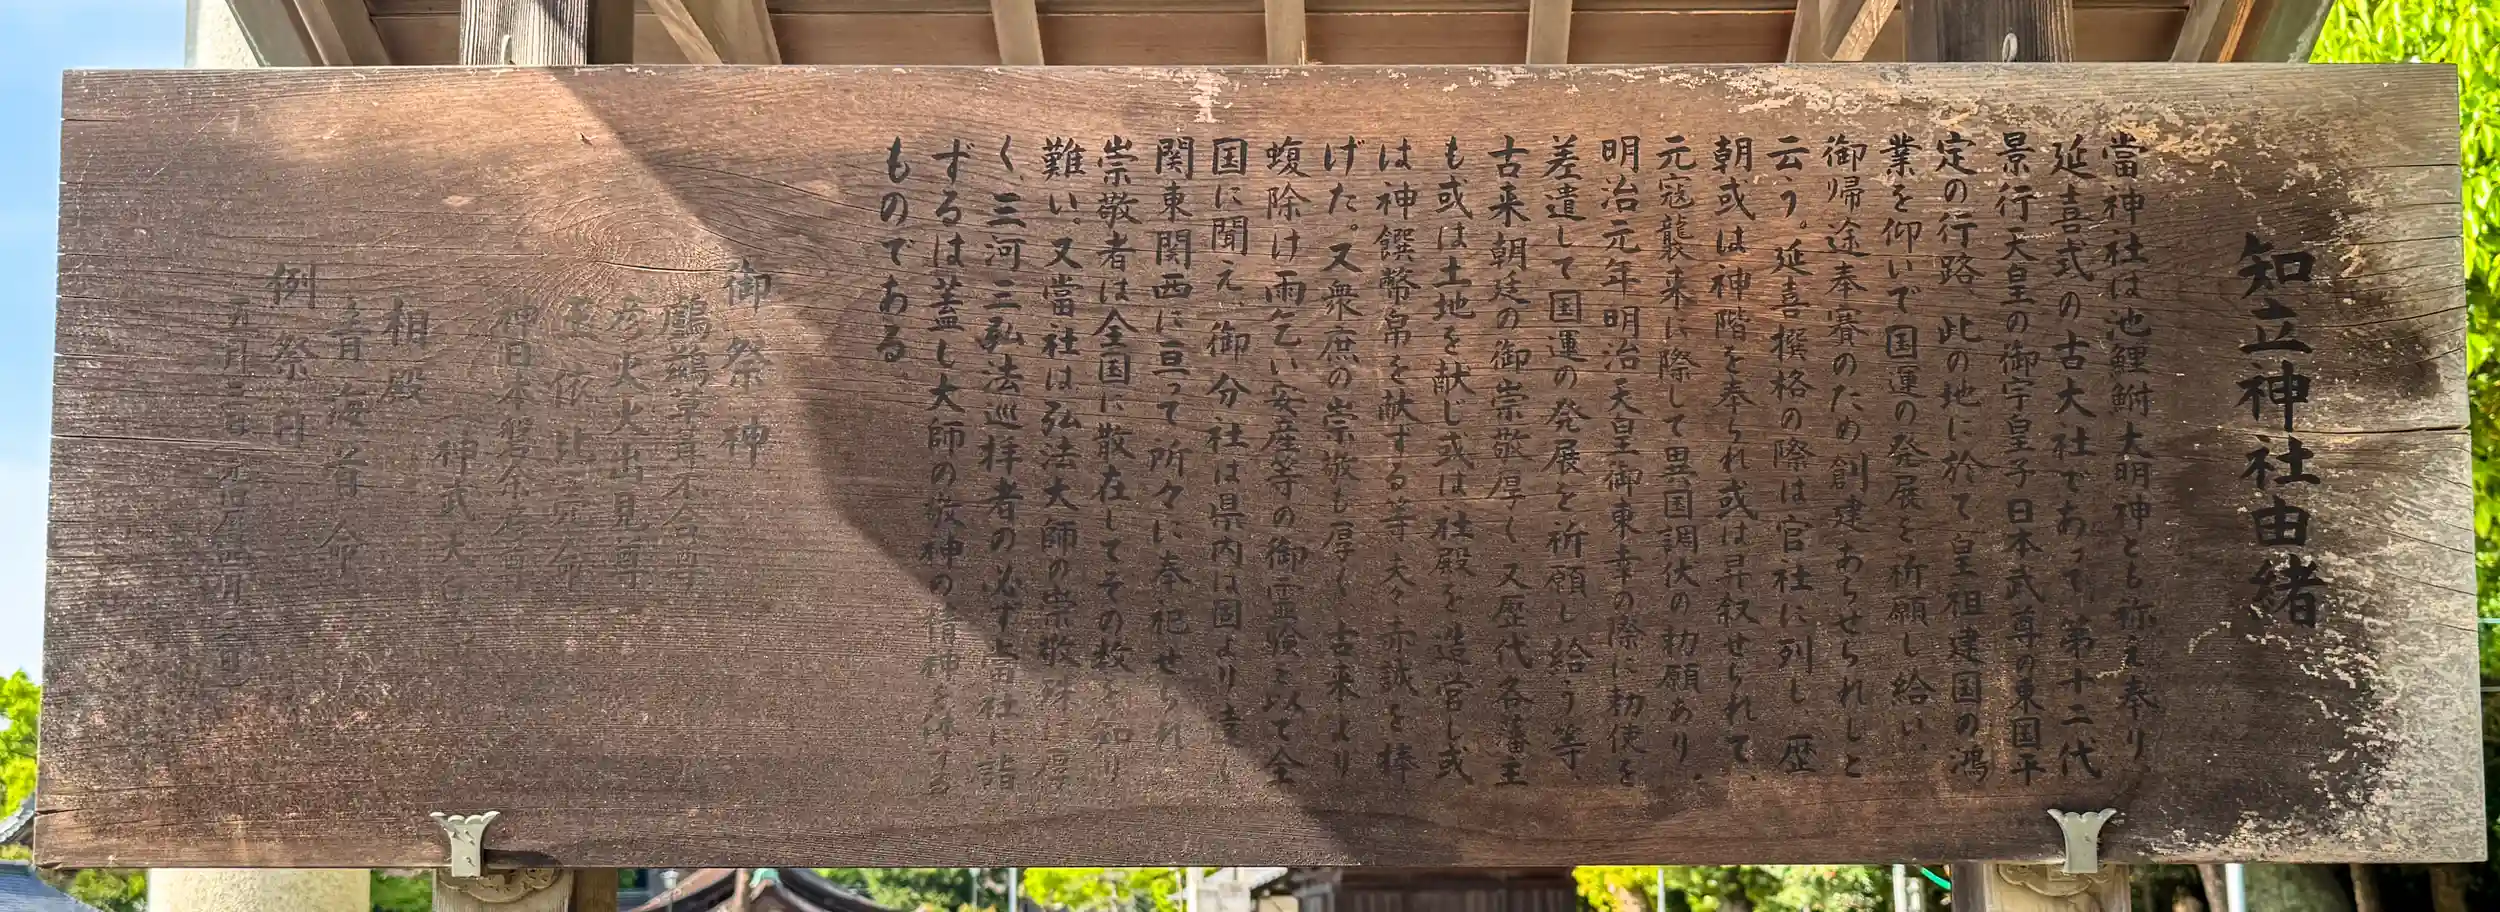 知立神社由緒
當神社は池鯉鮒大明神とも祢え奉り、
延喜式の古大社であって、第十二代
景行天皇の御宇皇子日本武尊の東国平
定の行路、此の地に於て皇祖建国の鴻
業を仰いで国運の発展を祈願し給い、
御帰途奉賽のため創建あらせられしと
云う。延喜撰格の際は官社に列し、歴
朝或は神階を奉られ或は昇叙せられて、
元寇襲来に際して異国調伏の勅願あり、
明治元年明治天皇御東幸の際に勅使を
差遣して国運の発展を祈願し給う等、
古来朝廷の御崇敬厚く、又歴代各藩主
も或は土地を献じ或は社殿を造営し或
は神饌幣帛を献ずる等夫々赤誠を捧
げた。又衆庶の崇敬も厚く、古来より
蝮除け雨乞い安産等の御霊験を以て全
国に聞え、御分社は県内は固より
関東関西に亘って所々に奉祀せられ
崇敬者は全国に散在してその数を知り
難い。又當社は弘法大師の崇敬殊に厚
く、三河三弘法巡拝者の必ず當社に詣
ずるは蓋し大師の敬神の
ものである。
御祭神
鸕鷀草葺不合尊
彦火火出見尊
玉依比売命
神日本磐余彦尊
神武天皇
相殿
青海首命
例祭日